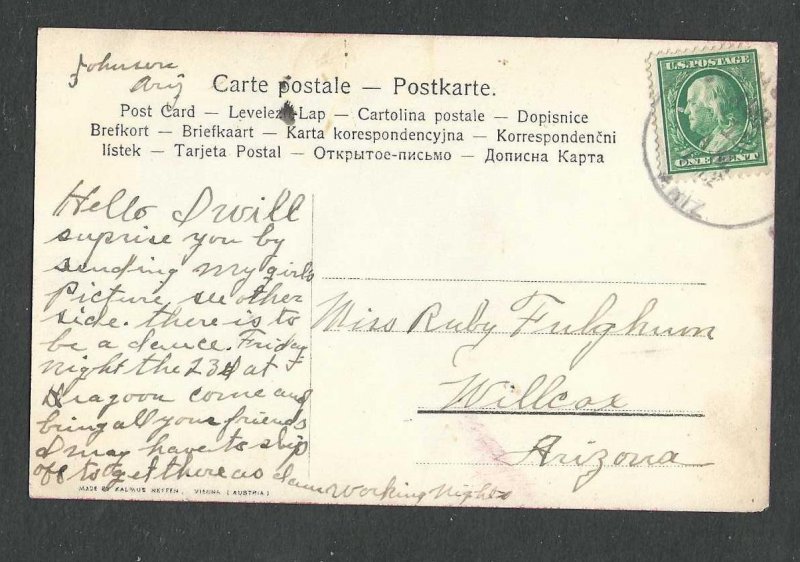 Johnson
Ariz
Carte postale — Postkarte.
Post Card — Levelező-Lap — Cartolina postale — Dopisnice
Brefkort — Briefkaart — Karta korespondencyjna — Korrespondenční
lístek — Tarjeta Postal — Открытое-письмо — Дописна Карта
U.S. POSTAGE
ONE CENT
ARIZ
Hello I will
suprise you by
sending my girls
Picture, see other
side. there is to
be a dance. Friday
night the 23d at
Dragoon come and
bring all your friends
I may have to slip
off to get there as I am working nights
Miss Ruby Fulghum
Willcox
Arizona
MADE BY KALMUS NEFFEN, VIENNA (AUSTRIA)